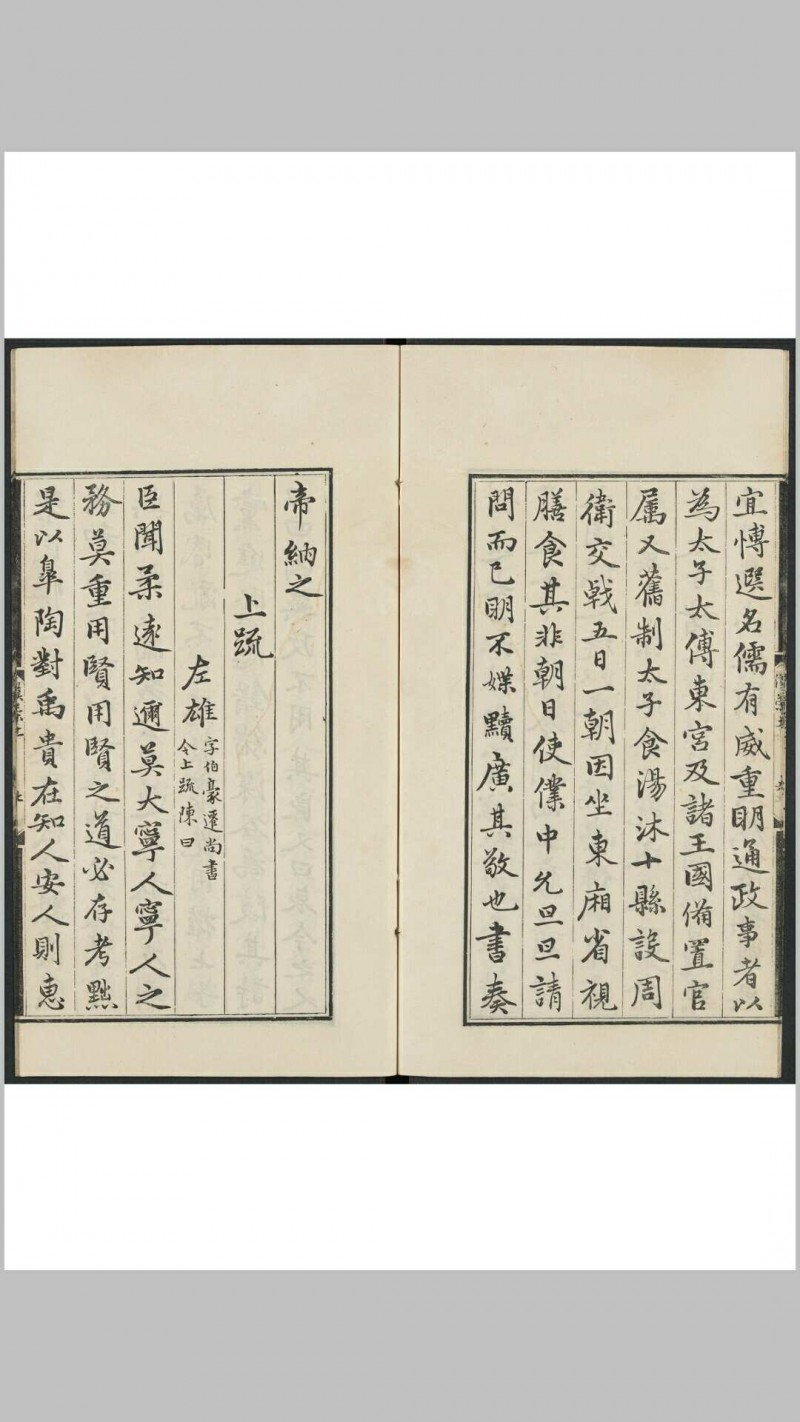 宜愽選名儒有威重明通政事者以
為太子太傅東宮及諸王國俻置官
属又舊制太子食湯沐十縣設周
衛交戟五日一朝因坐東廂省視
膳食其非朝日使僕中允旦旦請
問而已明不媟黷廣其敬也書奏
帝納之
上䟽
左雄
字伯豪遷尚書
令上䟽陳曰
臣聞柔遠知邇莫大寧人寧人之
務莫重用賢用賢之道必存考黜
是以臯陶對禹貴在知人安人則恵